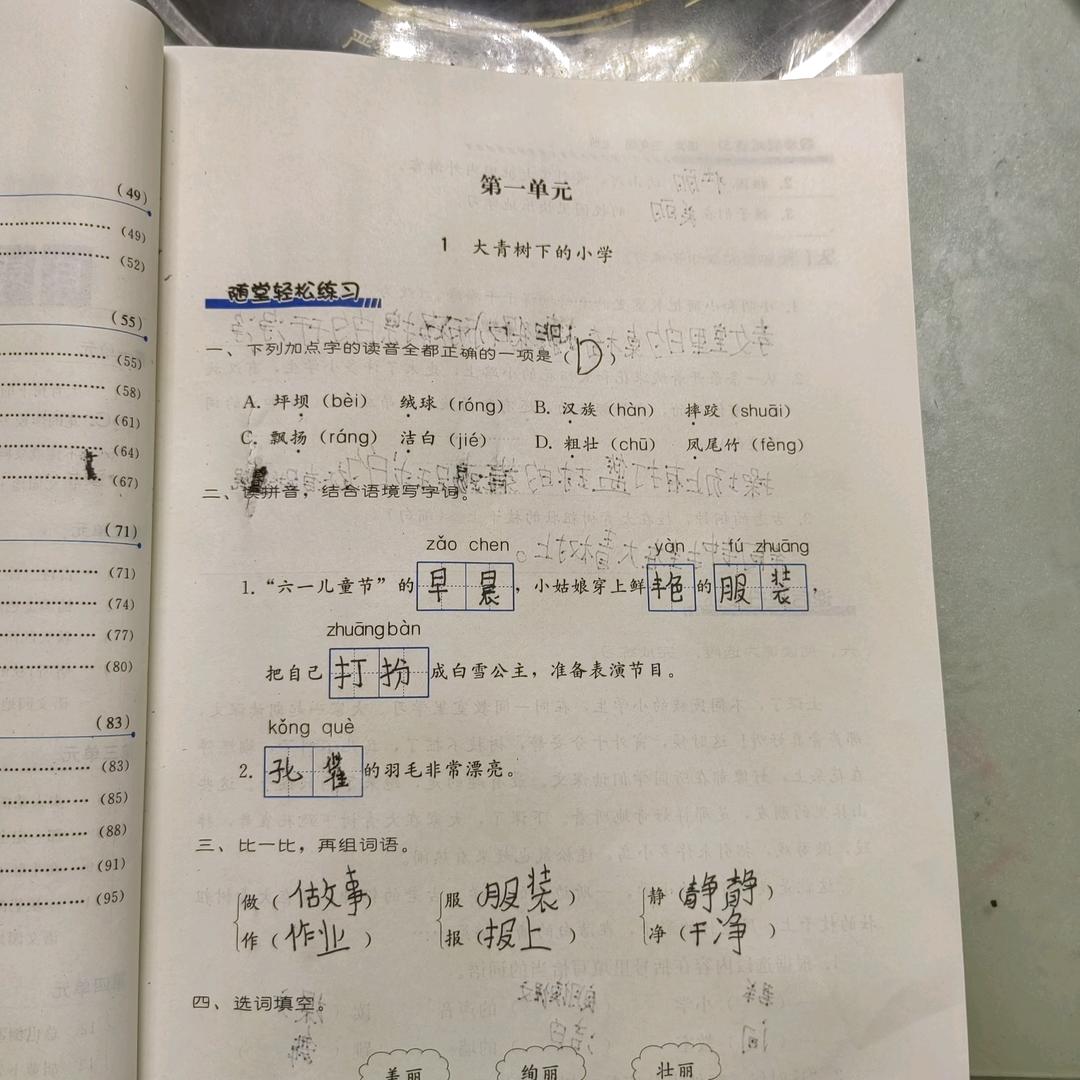 (49)
(49)
(52)
(55)
(55)
(58)
(61)
(64)
(67)
(71)
(71)
(74)
(77)
(80)
(83)
(83)
(85)
(88)
(91)
(95)
第一单元
1 大青树下的小学
随堂轻松练习
一、下列加点字的读音全都正确的一项是（D）
A. 坪坝（bèi） 绒球（róng） B. 汉族（hàn） 摔跤（shuāi）
C. 飘扬（ráng） 洁白（jié） D. 粗壮（chū） 凤尾竹（fèng）
二、读拼音，结合语境写字词。
zǎo chen yàn fú zhuāng
1. “六一儿童节”的早晨，小姑娘穿上鲜艳的服装，
zhuāng bàn
把自己打扮成白雪公主，准备表演节目。
kǒng què
2. 孔雀的羽毛非常漂亮。
三、比一比，再组词语。
做（做故事） 服（服装） 静（静静）
作（作业） 报（报上） 净（干净）
四、选词填空。
美丽 绚丽 壮丽